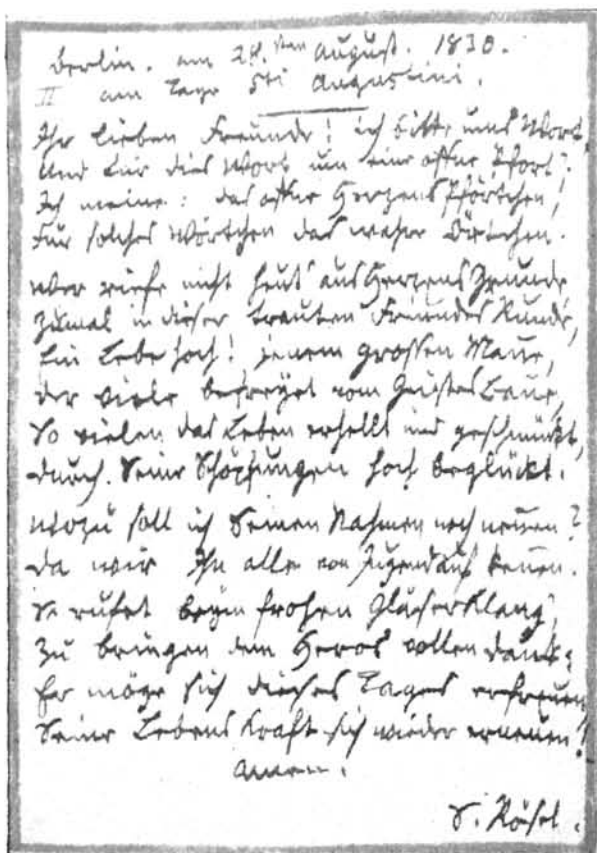 Berlin. am 28.sten August. 1830.
II am Tage Sti Augustini.
Ihr lieben Freunde! ich bitte ums Wort,
Und für dies Wort um eine offne Pfort'.
Ich meine: das offne Herzens Pförtchen,
Für solches Wörtchen das wahre Örtchen.
Wer riefe nicht heut' aus Herzens Grunde,
Zumal in dieser trauten Freundes Runde,
Ein Lebe hoch! jenem grossen Mane,
Der viele befreyet vom Geistes Bane,
So vielen das Leben erhellt und geschmückt,
Durch Seine Schöpfungen hoch beglückt.
Wozu soll ich Seinen Nahmen noch nenen?
Da wir Ihn alle von Jugend auf kenen.
So rufet beym frohen Gläserklang,
Zu bringen dem Heros vollen Dank:
Er möge Sich dieses Tages erfreuen,
Seine Lebens Kraft sich wieder erneuen!
Amen.
S. Rösel.